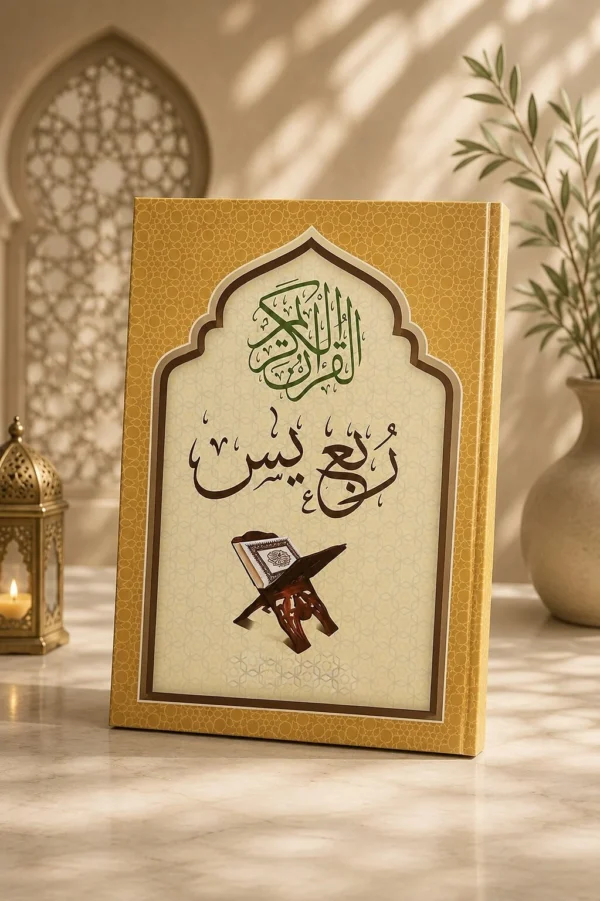 القرآن الكريم
ربع يس